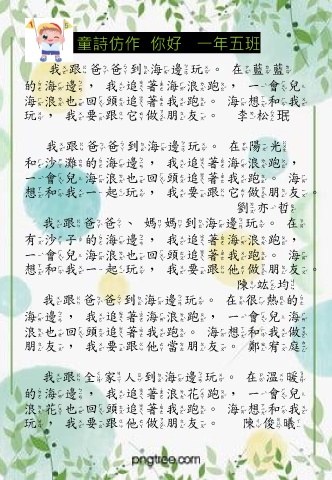 童詩仿作 你好 一年五班
我跟爸爸到海邊玩。在藍藍
的海邊，我追著海浪跑，一會兒
海浪也回頭追著我跑。海想和我
玩，我要跟它做朋友。 李松珉
我跟爸爸到海邊玩。在陽光
和沙灘的海邊，我追著海浪跑，
一會兒海浪也回頭追著我跑。海
想和我一起玩，我要跟它做朋友。
劉亦哲
我跟爸爸、媽媽到海邊玩。在
有沙子的海邊，我追著海浪跑，
一會兒海浪也回頭追著我跑。海
想和我一起玩，我要跟他做朋友。
陳竑均
我跟爸爸到海邊玩。在很熱的
海邊，我追著海浪跑，一會兒海
浪也回頭追著我跑。海想和我做
朋友，我要跟他當朋友。鄭宥庭
我跟全家人到海邊玩。在溫暖
的海邊，我追著浪花跑，一會兒
浪花也回頭追著我跑。海想和我
玩，我要跟他做朋友。 陳俊曦
pngtree.com